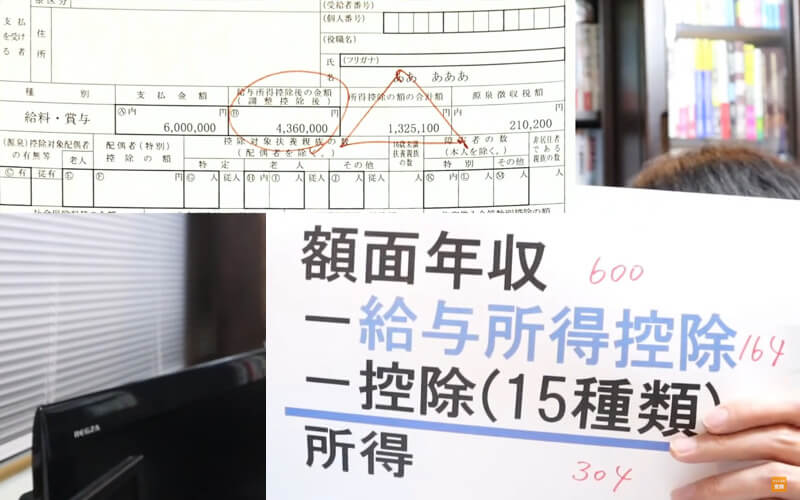 支払
を受け
る者
住
所
(受給者番号)
(個人番号)
(役職名)
氏
名
(フリガナ)
ああ あああ
種 別
支 払 金 額
給与所得控除後の金額
(調整控除後)
所得控除の額の合計額
源泉徴収税額
給料・賞与
Ⓐ内 円
6,000,000
Ⓑ 円
4,360,000
円
1,325,100
内 円
210,200
(源泉)控除対象配偶者
の有無等
老人
配偶者(特別)
控除の額
控除対象扶養親族の数
(配偶者を除く。)
特定
老人
その他
16歳未満
扶養親族
の数
障害者の数
(本人を除く。)
特別
その他
非居住者
である
親族の数
有 従有
人 従人
内 人 従人
人 従人
人
内 人
人
人
REGZA
額面年収 600
−給与所得控除 164
−控除(15種類)
所得 304